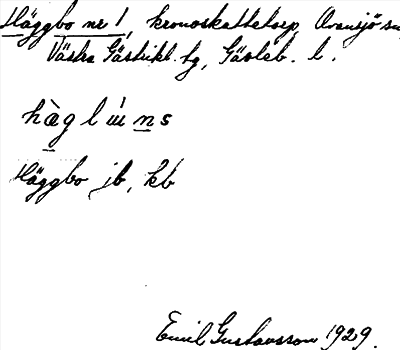 Häggbo nr 1, kronoskattetorp, Ovansjö sn,
Västra Gästrikl. tg, Gävleb. l.
Häggbo jb, kb
Emil Gustavsson 1929.